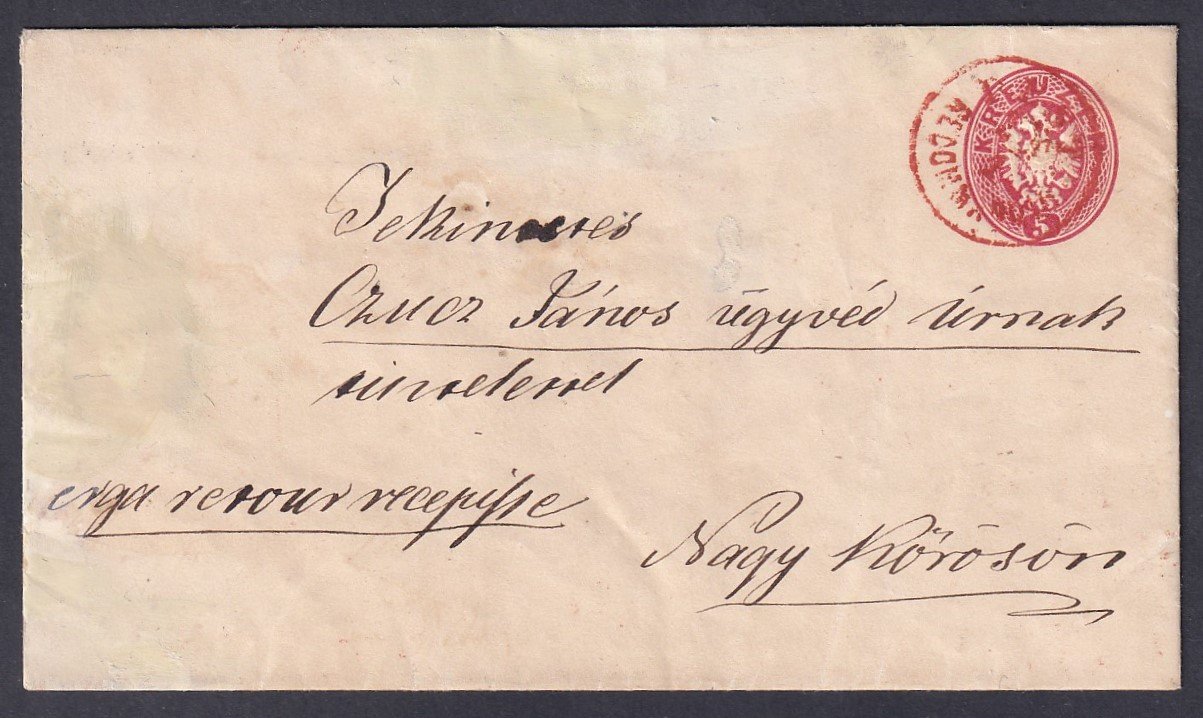 KREUZER
5
Tekintetes
Czucz János ügyvéd úrnak
tisztelettel
erga retour recepisse
Nagy Kőrösön